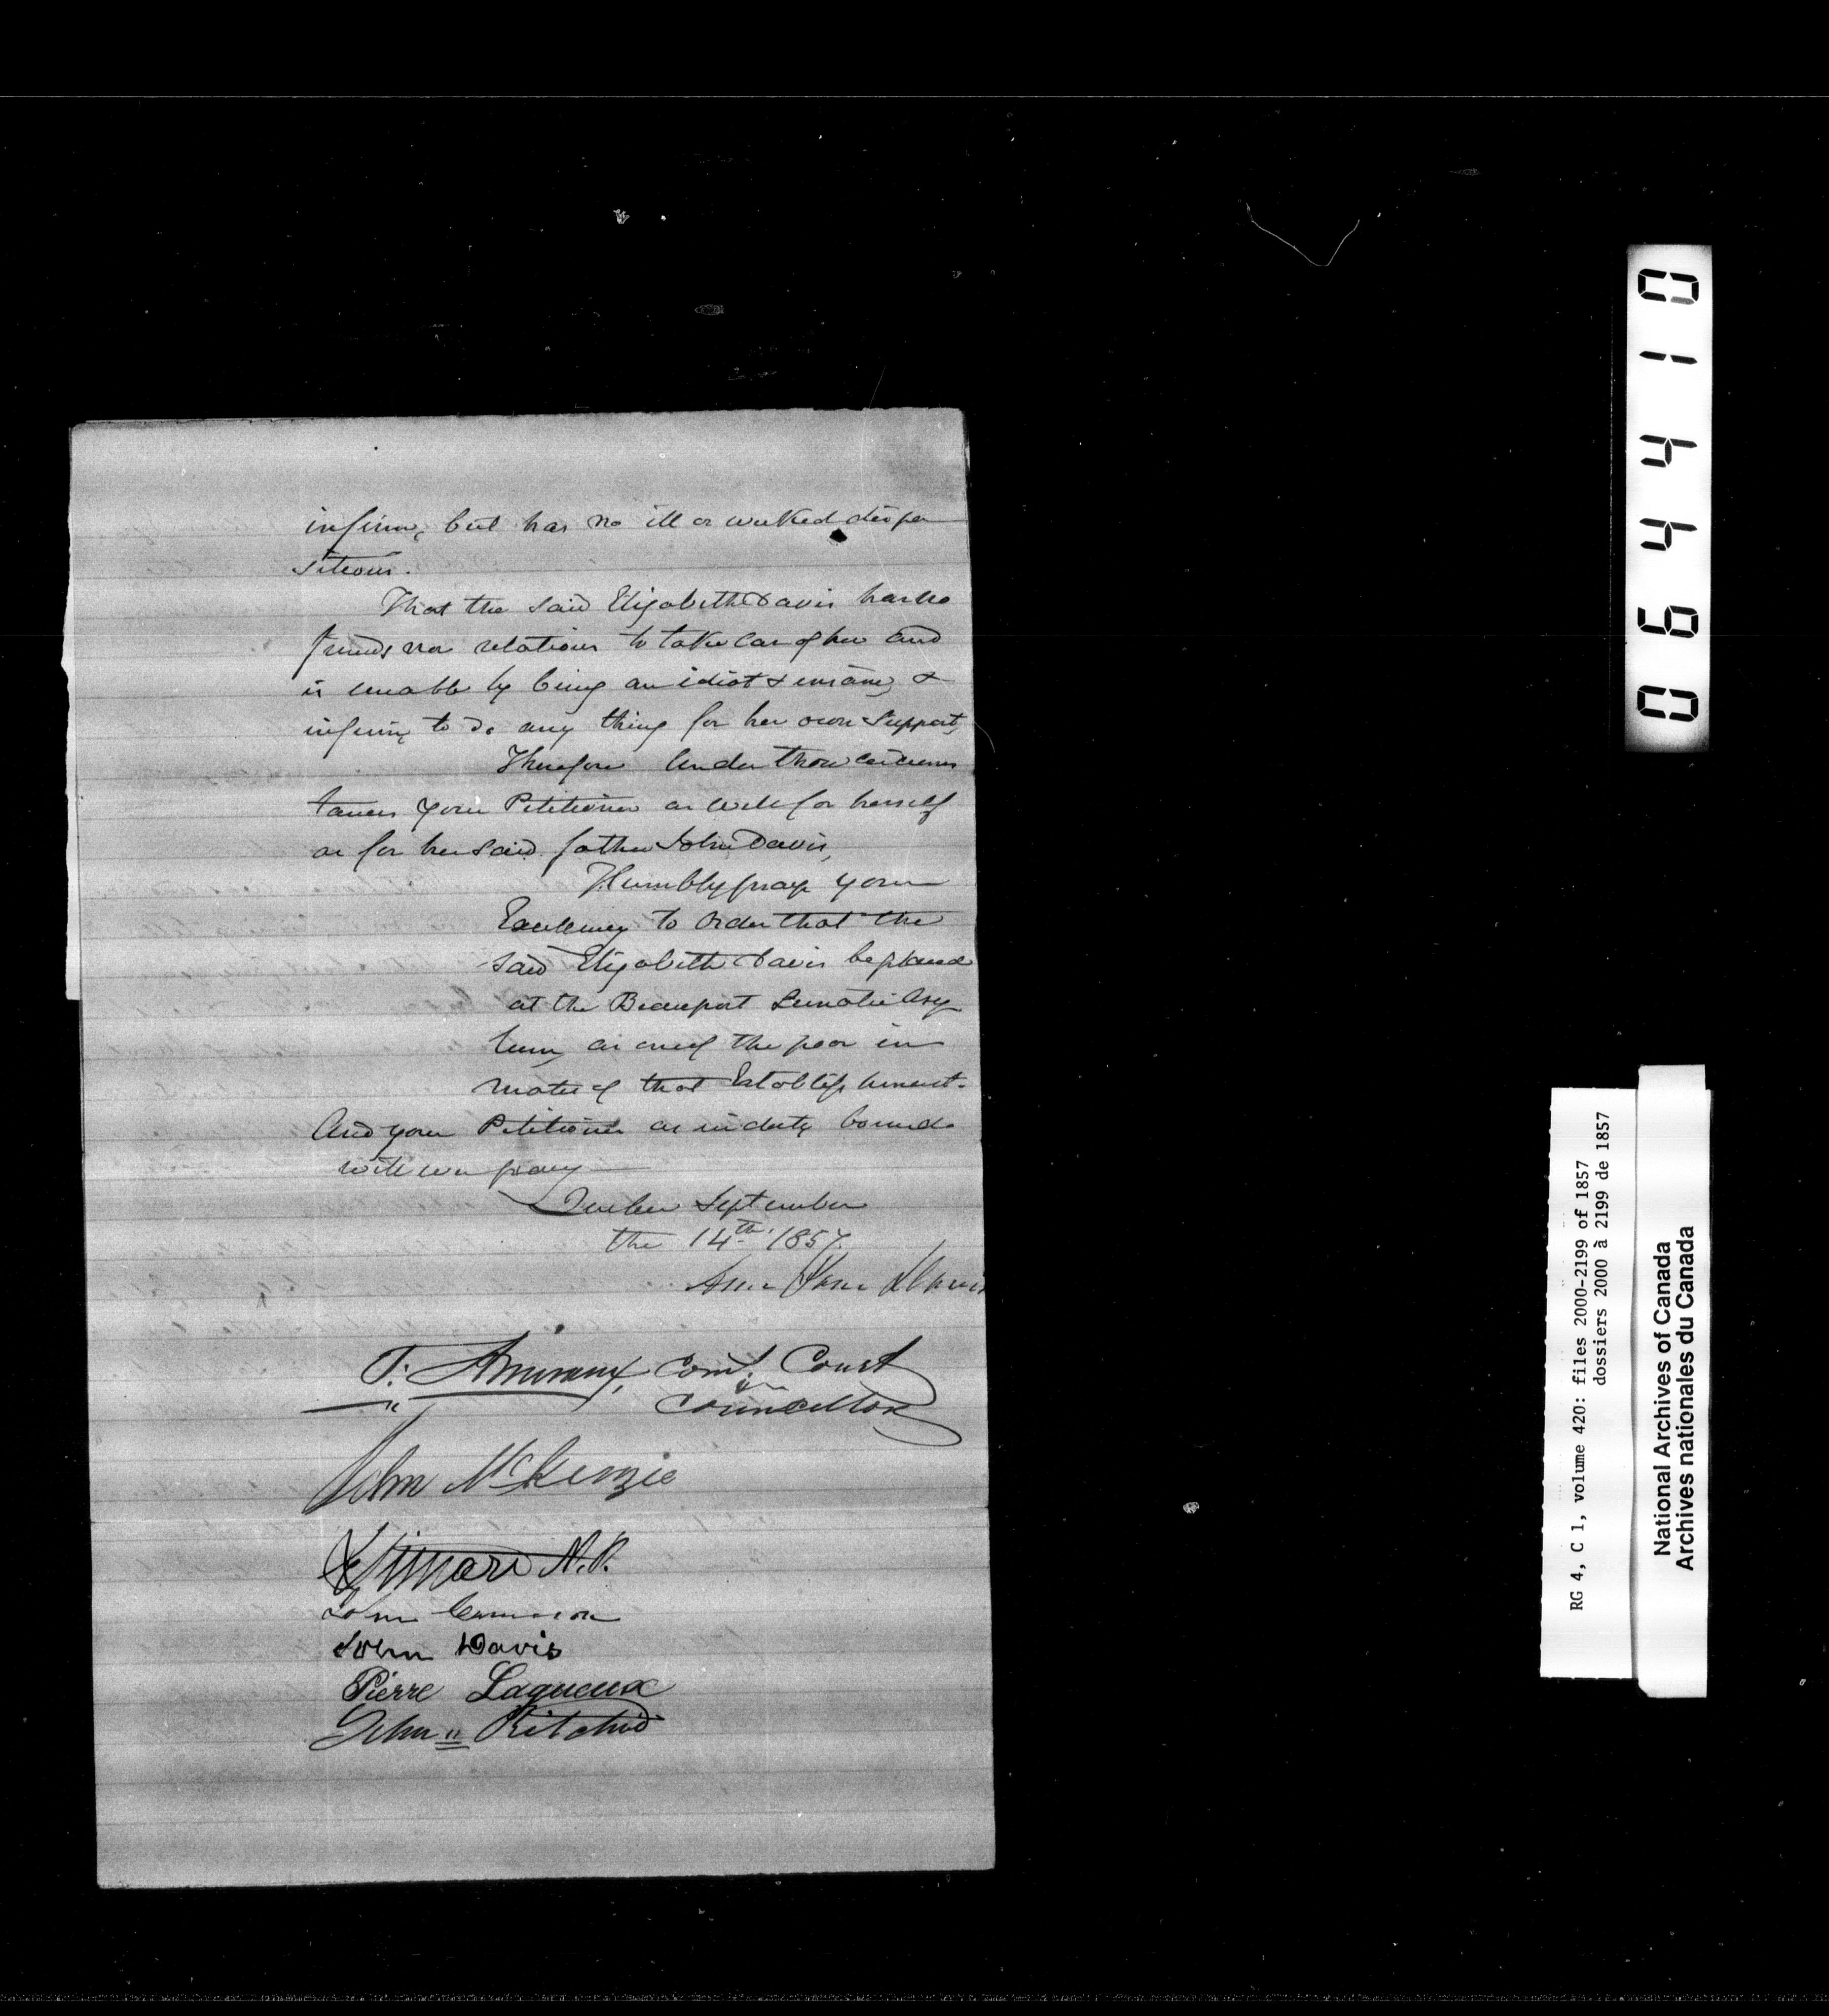 infirm, but has no ill or wicked dispo
sitions.
That the said Elizabeth Davis has no
friends nor relations to take care of her and
is unable by being an idiot & insane, &
infirm, to do any thing for her own support,
Therefore under those circums
tances your Petitioner as well for herself
as for her said father John Davis,
Humbly pray your
Excellency to order that the
said Elizabeth Davis be placed
at the Beauport Lunatic Asy
lum, as one of the poor in
mate of that Establishment.
And your Petitioner as in duty bound
will ever pray
Quebec September
the 14th 1857.
Ann Jane Davis
T. Amiraux, Com. Court
Councillor
John McKenzie
N.P.
John Cameron
John Davis
Pierre Lagueux
John Ritchie
064410
RG 4, C 1, volume 420: files 2000-2199 of 1857
dossiers 2000 à 2199 de 1857
National Archives of Canada
Archives nationales du Canada